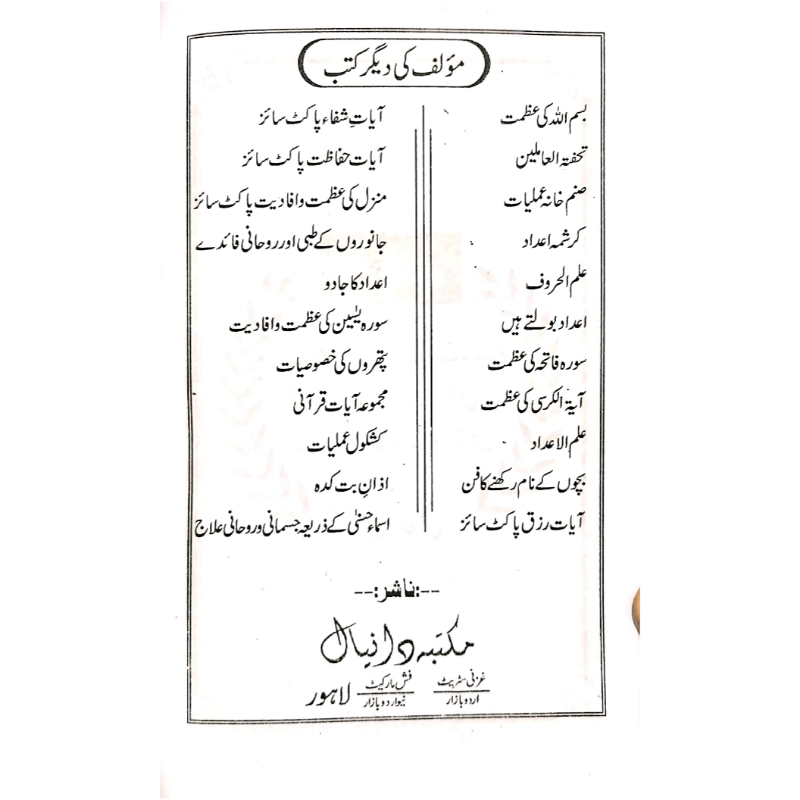 مؤلف کی دیگر کتب
بسم اللہ کی عظمت
تحفۃ العاملین
صنم خانہ عملیات
کرشمہ اعداد
علم الحروف
اعداد بولتے ہیں
سورہ فاتحہ کی عظمت
آیۃ الکرسی کی عظمت
علم الاعداد
بچوں کے نام رکھنے کا فن
آیات رزق پاکٹ سائز
آیاتِ شفاء پاکٹ سائز
آیات حفاظت پاکٹ سائز
منزل کی عظمت و افادیت پاکٹ سائز
جانوروں کے طبی اور روحانی فائدے
اعداد کا جادو
سورہ یٰسین کی عظمت و افادیت
پتھروں کی خصوصیات
مجموعہ آیات قرآنی
کشکول عملیات
اذانِ بت کدہ
اسماء حسنٰی کے ذریعہ جسمانی و روحانی علاج
--:ناشر:--
مکتبہ دانیال
غزنی سٹریٹ اردو بازار فش مارکیٹ نیو اردو بازار لاہور